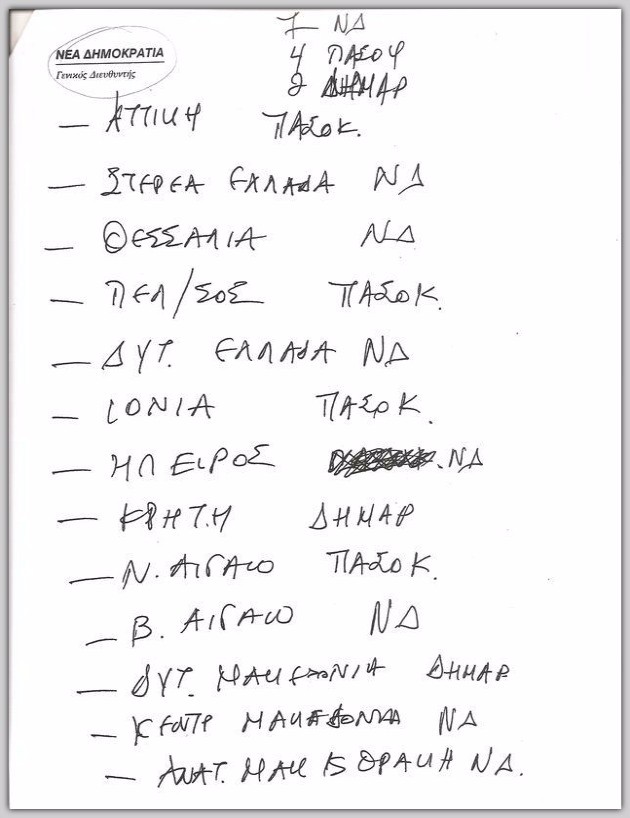 ΝΕΑ ΔΗΜΟΚΡΑΤΙΑ
Γενικός Διευθυντής
7 ΝΔ
4 ΠΑΣΟΚ
2 ΔΗΜΑΡ
— ΑΤΤΙΚΗ ΠΑΣΟΚ.
— ΣΤΕΡΕΑ ΕΛΛΑΔΑ ΝΔ
— ΘΕΣΣΑΛΙΑ ΝΔ
— ΠΕΛ/ΣΟΣ ΠΑΣΟΚ.
— ΔΥΤ. ΕΛΛΑΔΑ ΝΔ
— ΙΟΝΙΑ ΠΑΣΟΚ.
— ΗΠΕΙΡΟΣ ΝΔ
— ΚΡΗΤΗ ΔΗΜΑΡ
— Ν. ΑΙΓΑΙΟ ΠΑΣΟΚ.
— Β. ΑΙΓΑΙΟ ΝΔ
— ΔΥΤ. ΜΑΚΕΔΟΝΙΑ ΔΗΜΑΡ
— ΚΕΝΤΡ ΜΑΚΕΔΟΝΙΑ ΝΔ
— ΑΝΑΤ. ΜΑΚ ΚΣ ΘΡΑΚΗ ΝΔ.